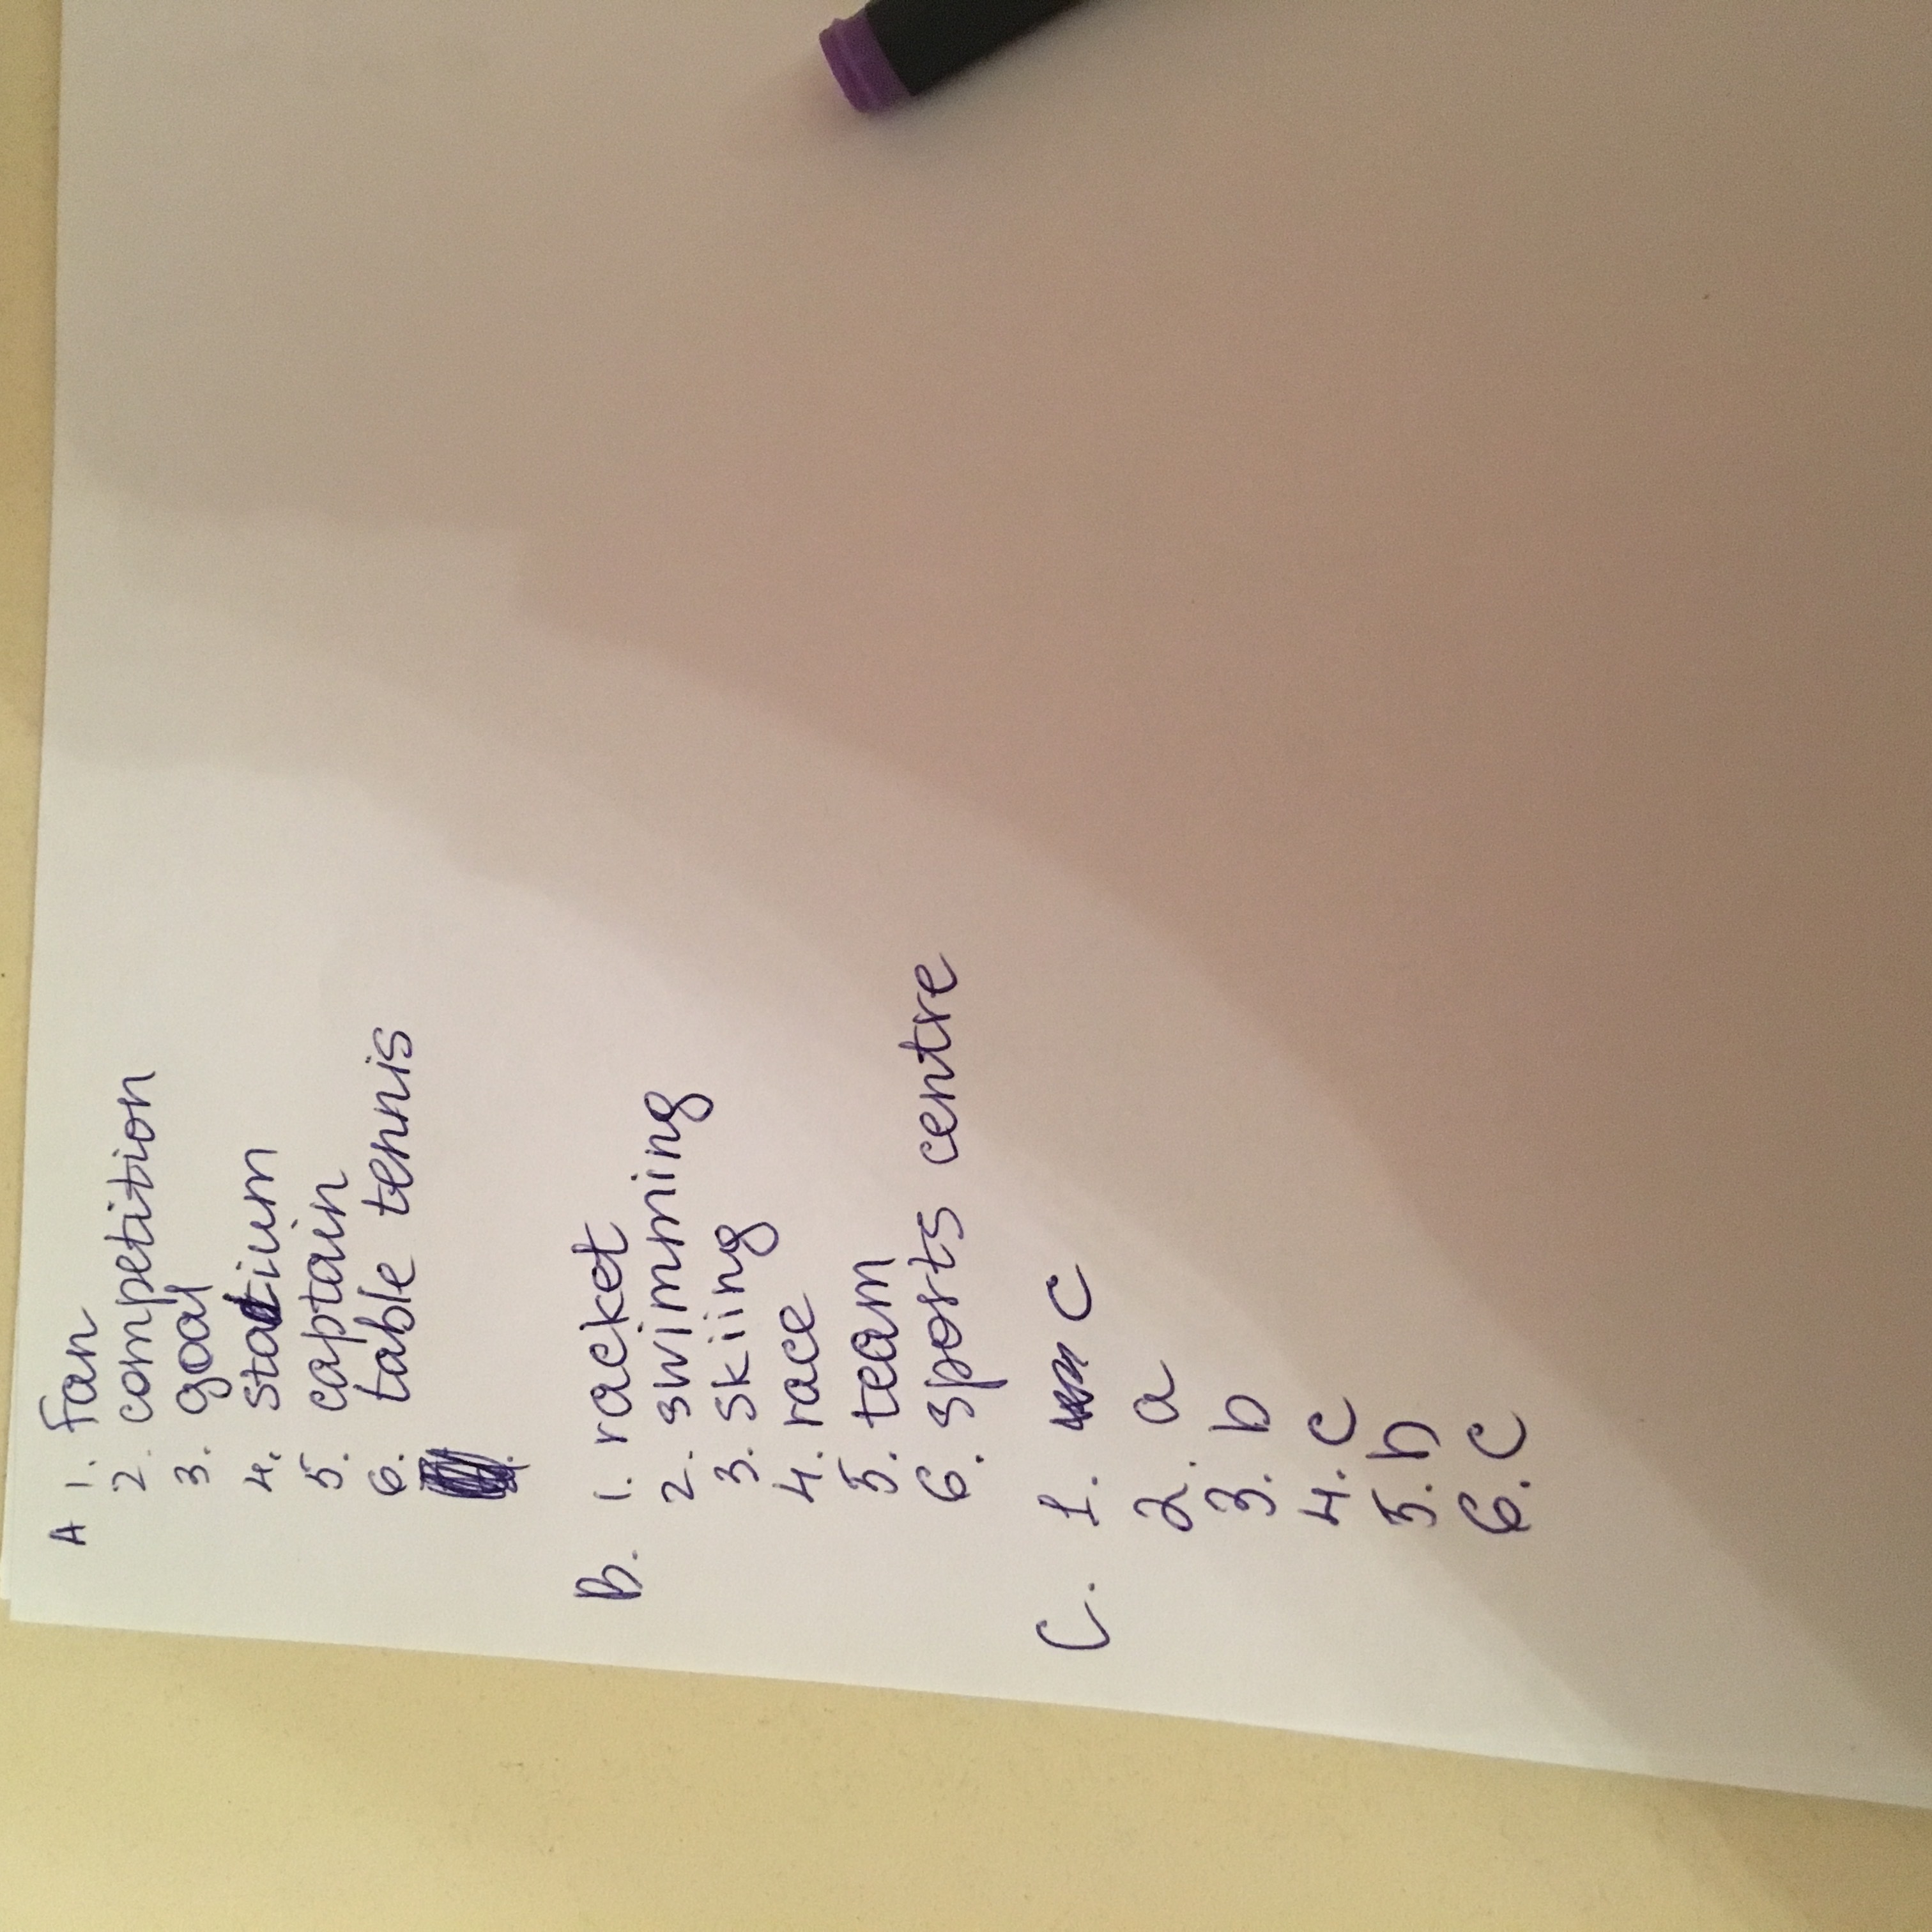 A 1. fan
2. competition
3. goal
4. stadium
5. captain
6. table tennis
B. 1. racket
2. swimming
3. skiing
4. race
5. team
6. sports centre
C. 1. c
2. a
3. b
4. c
5. b
6. c